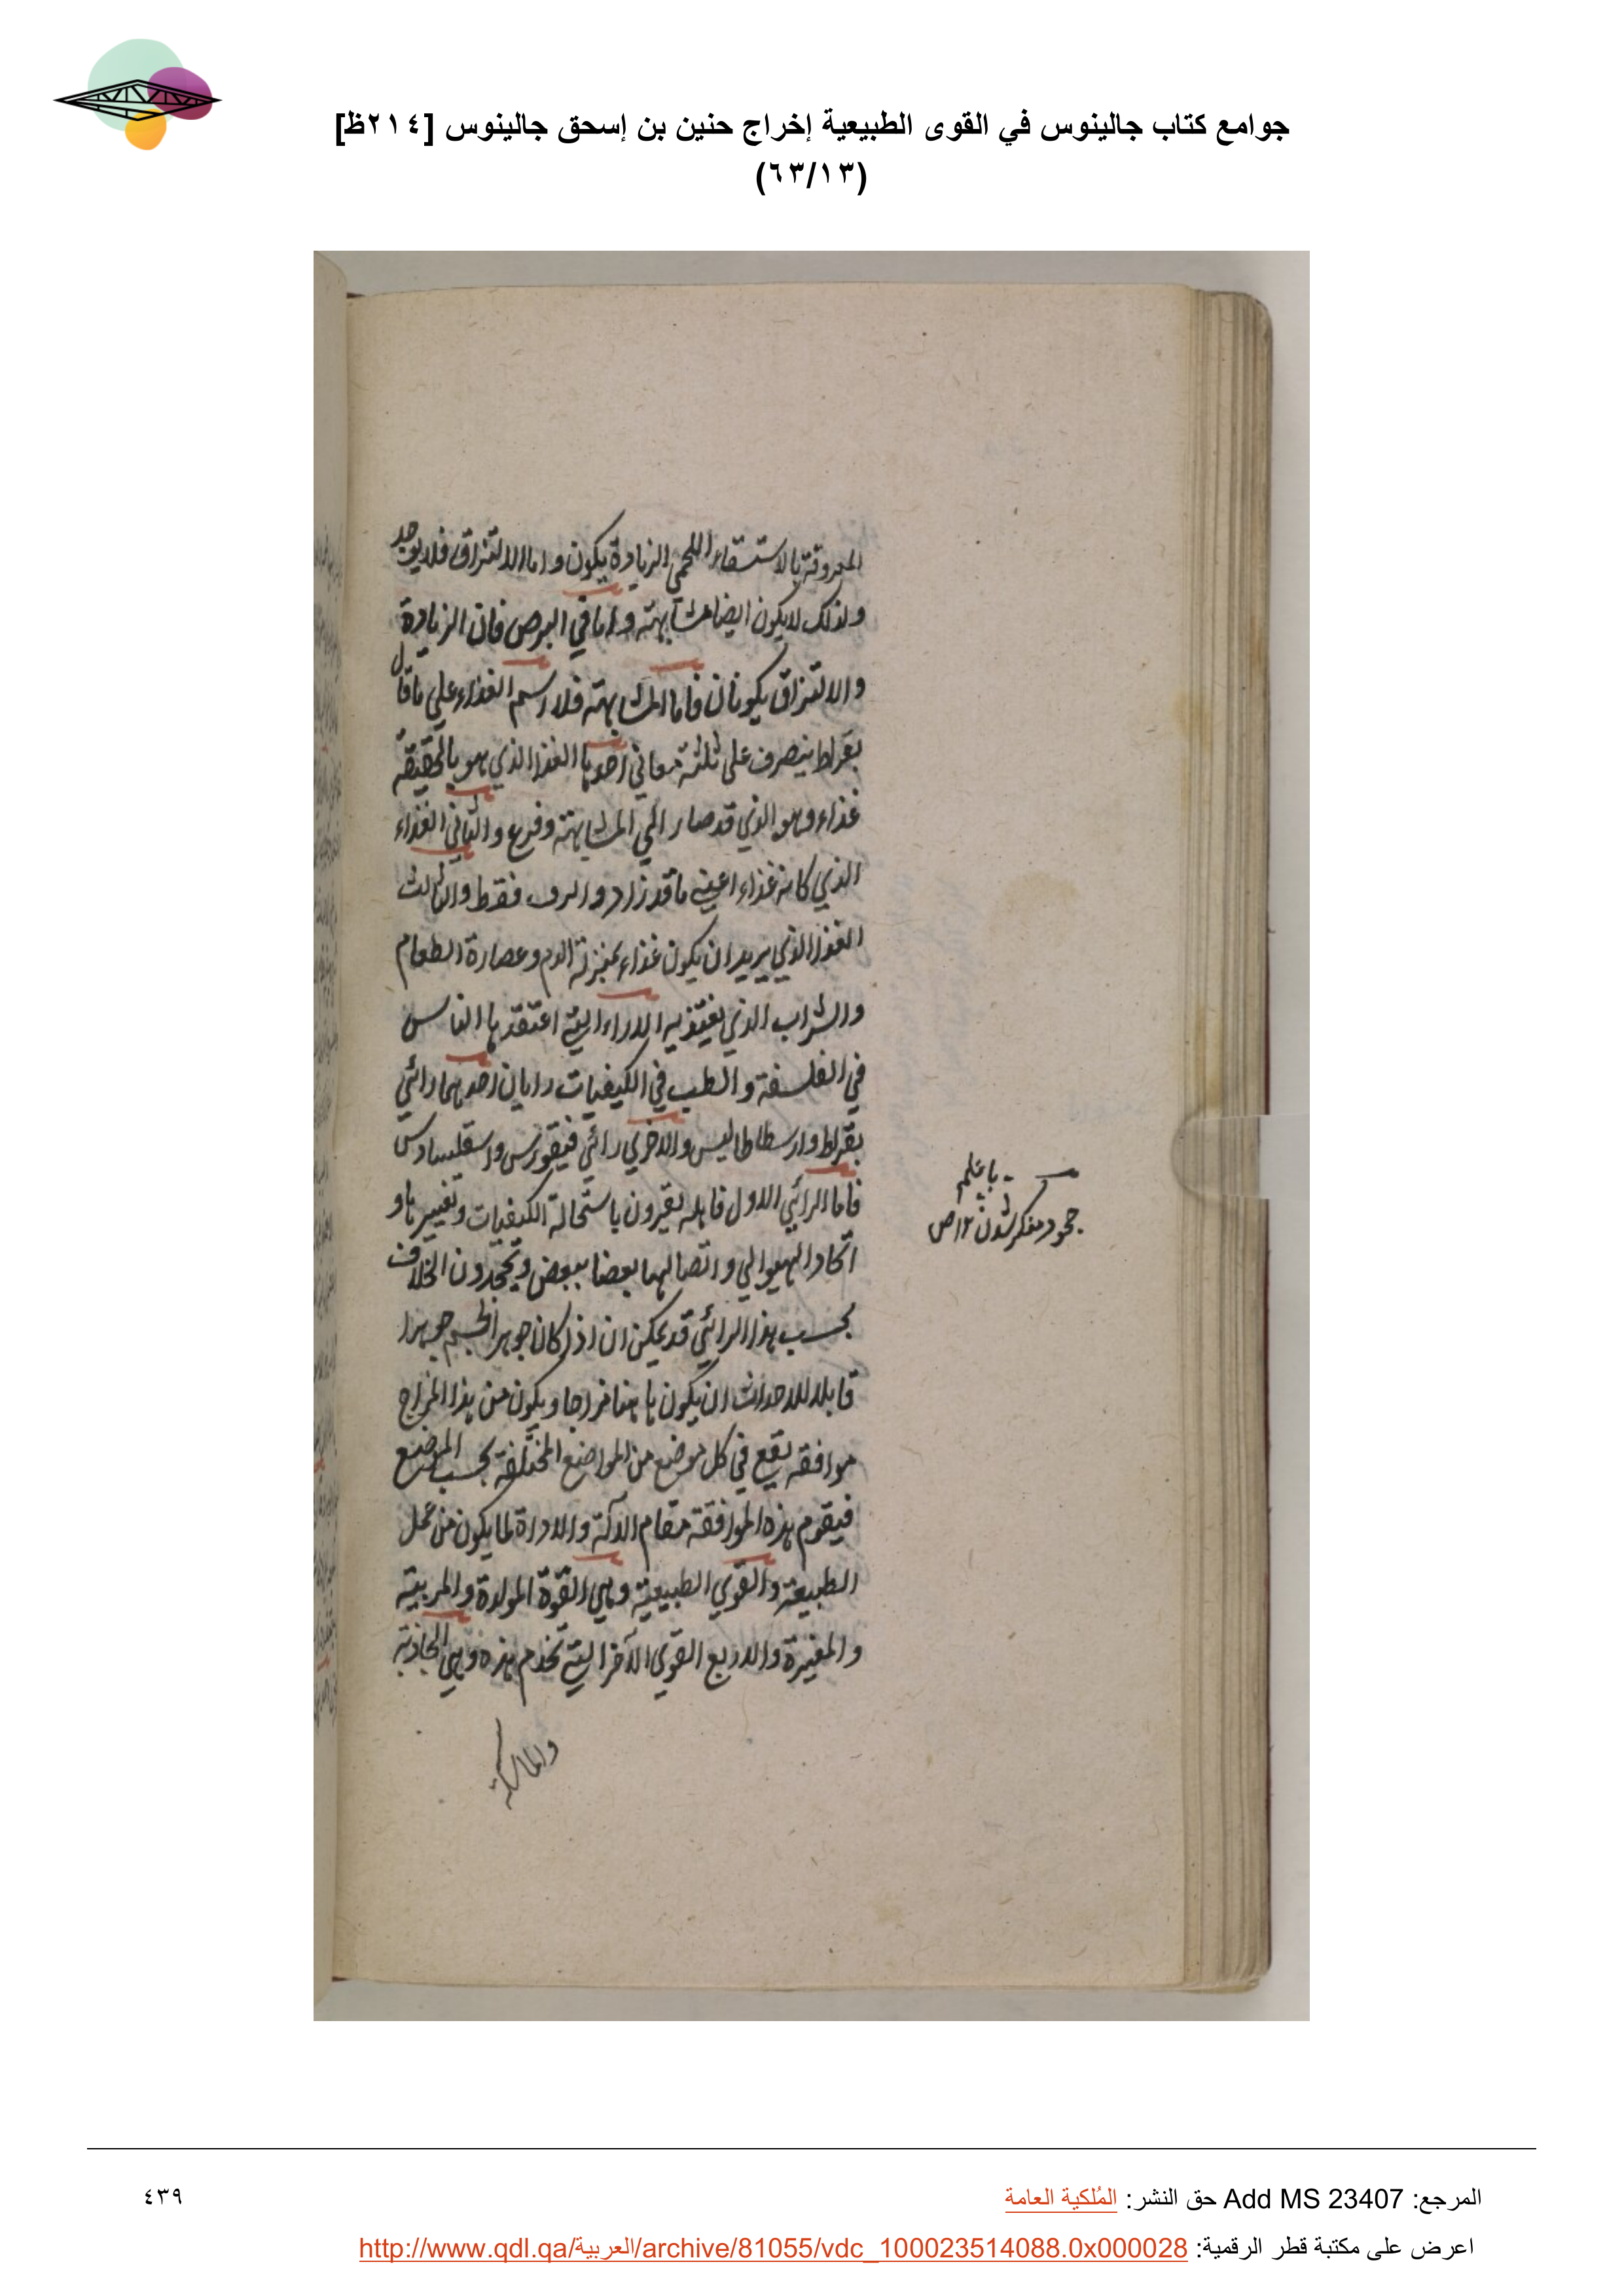 جوامع كتاب جالينوس في القوى الطبيعية إخراج حنين بن إسحق جالينوس [٢١٤ظ]
(٦٣/١٣)
المعروفة بالاستسقاء اللحمي الزيادة يكون واما الالتزاق فلا يوجد
ولذلك لا يكون ايضا مشابهته واما في البرص فان الزيادة
والالتزاق يكونان فاما المشابهته فلا اسم الغذاء علي ما قال
بقراط ينصرف على ثلثة معاني احدها الغذا الذي هو بالحقيقة
غذاء وهو الذي قد صار الي المشابهته وفرغ والثاني الغذاء
الذي كانه غذاء اعني ما قد زاد و فقط والثالث
الغذا الذي يريد ان يكون غذاء بمنزلة الدم وعصارة الطعام
والشراب الذي يغتذي به الاراء التي اعتقدها الناس
في الفلسفة والطب في الكيفيات رايان احدهما رائي
بقراط وارسطاطاليس والاخري رائي فيقورس واسقلبيادس
فاما الرائي الاول فاهله يقرون باستحالة الكيفيات وتغييرها و
اتحاد الهيوالي واتصالهما بعضا ببعض ويجحدون الخلاف
بحسب هذا الرائي قد يمكن ان اذا كان جوهر الجسم جوهرا
قابلا للاحداث ان يكون هاهنا مزاجا ويكون من هذا المزاج
موافقة يقع في كل موضع من المواضع المختلفة بحسب الموضع
فيقوم هذه الموافقة مقام الآلة والاداة لما يكون من عمل
الطبيعة والقوي الطبيعية وهي القوة المولدة والمربية
والمغيرة والاربع القوي الآخر التي تخدم هذه وهي الجاذبة
والماسكة
جحود منكر شدن
المرجع: Add MS 23407 حق النشر: المُلكية العامة
٤٣٩
اعرض على مكتبة قطر الرقمية: http://www.qdl.qa/العربية/archive/81055/vdc_100023514088.0x000028